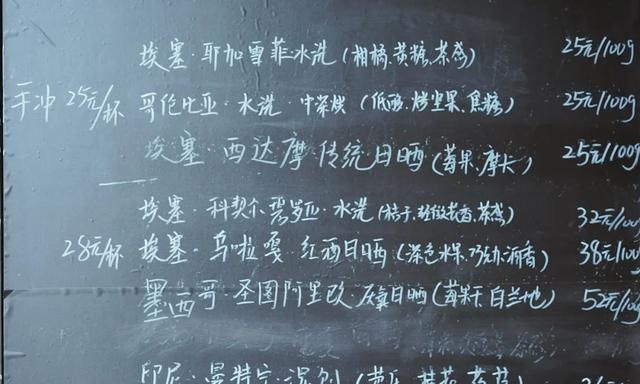 埃塞·耶加雪菲·水洗(柑橘.黄糖.茶感) 25元/100g
手冲 25元/杯 哥伦比亚·水洗·中深烘(低酸.烤坚果.焦糖) 25元/100g
埃塞·西达摩 传统日晒(莓果.摩卡) 25元/100g
埃塞·科契尔 碧罗亚·水洗(桔子.轻微花香.茶感) 32元/100
28元/杯 埃塞·乌啦嘎·红酒日晒(深色水果.巧力.酒香) 38元/100
墨西哥·圣图阿里奥 厌氧日晒(莓果干.白兰地) 52元/10
印尼·曼特宁·深